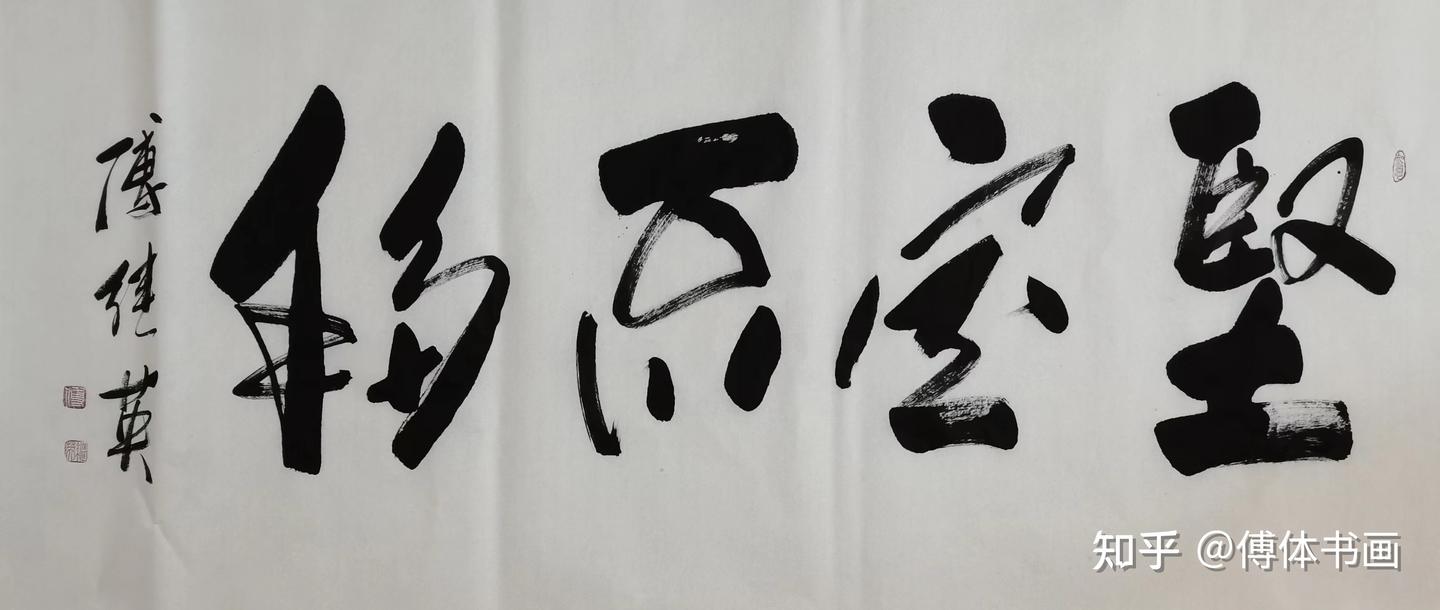 堅定不移
傅继英
知乎 @傅体书画